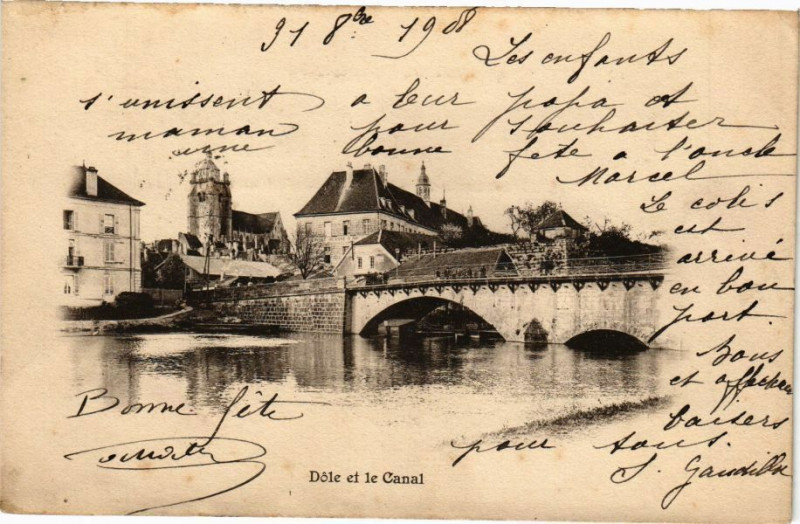 31 8bre 1908
Les enfants
s'unissent a leur papa et
maman pour souhaiter
une bonne fête a l'oncle
Marcel
Le colis
est
arrivé
en bon
port.
Bons
et affectueux
baisers
pour tous.
Bonne fête
Dôle et le Canal